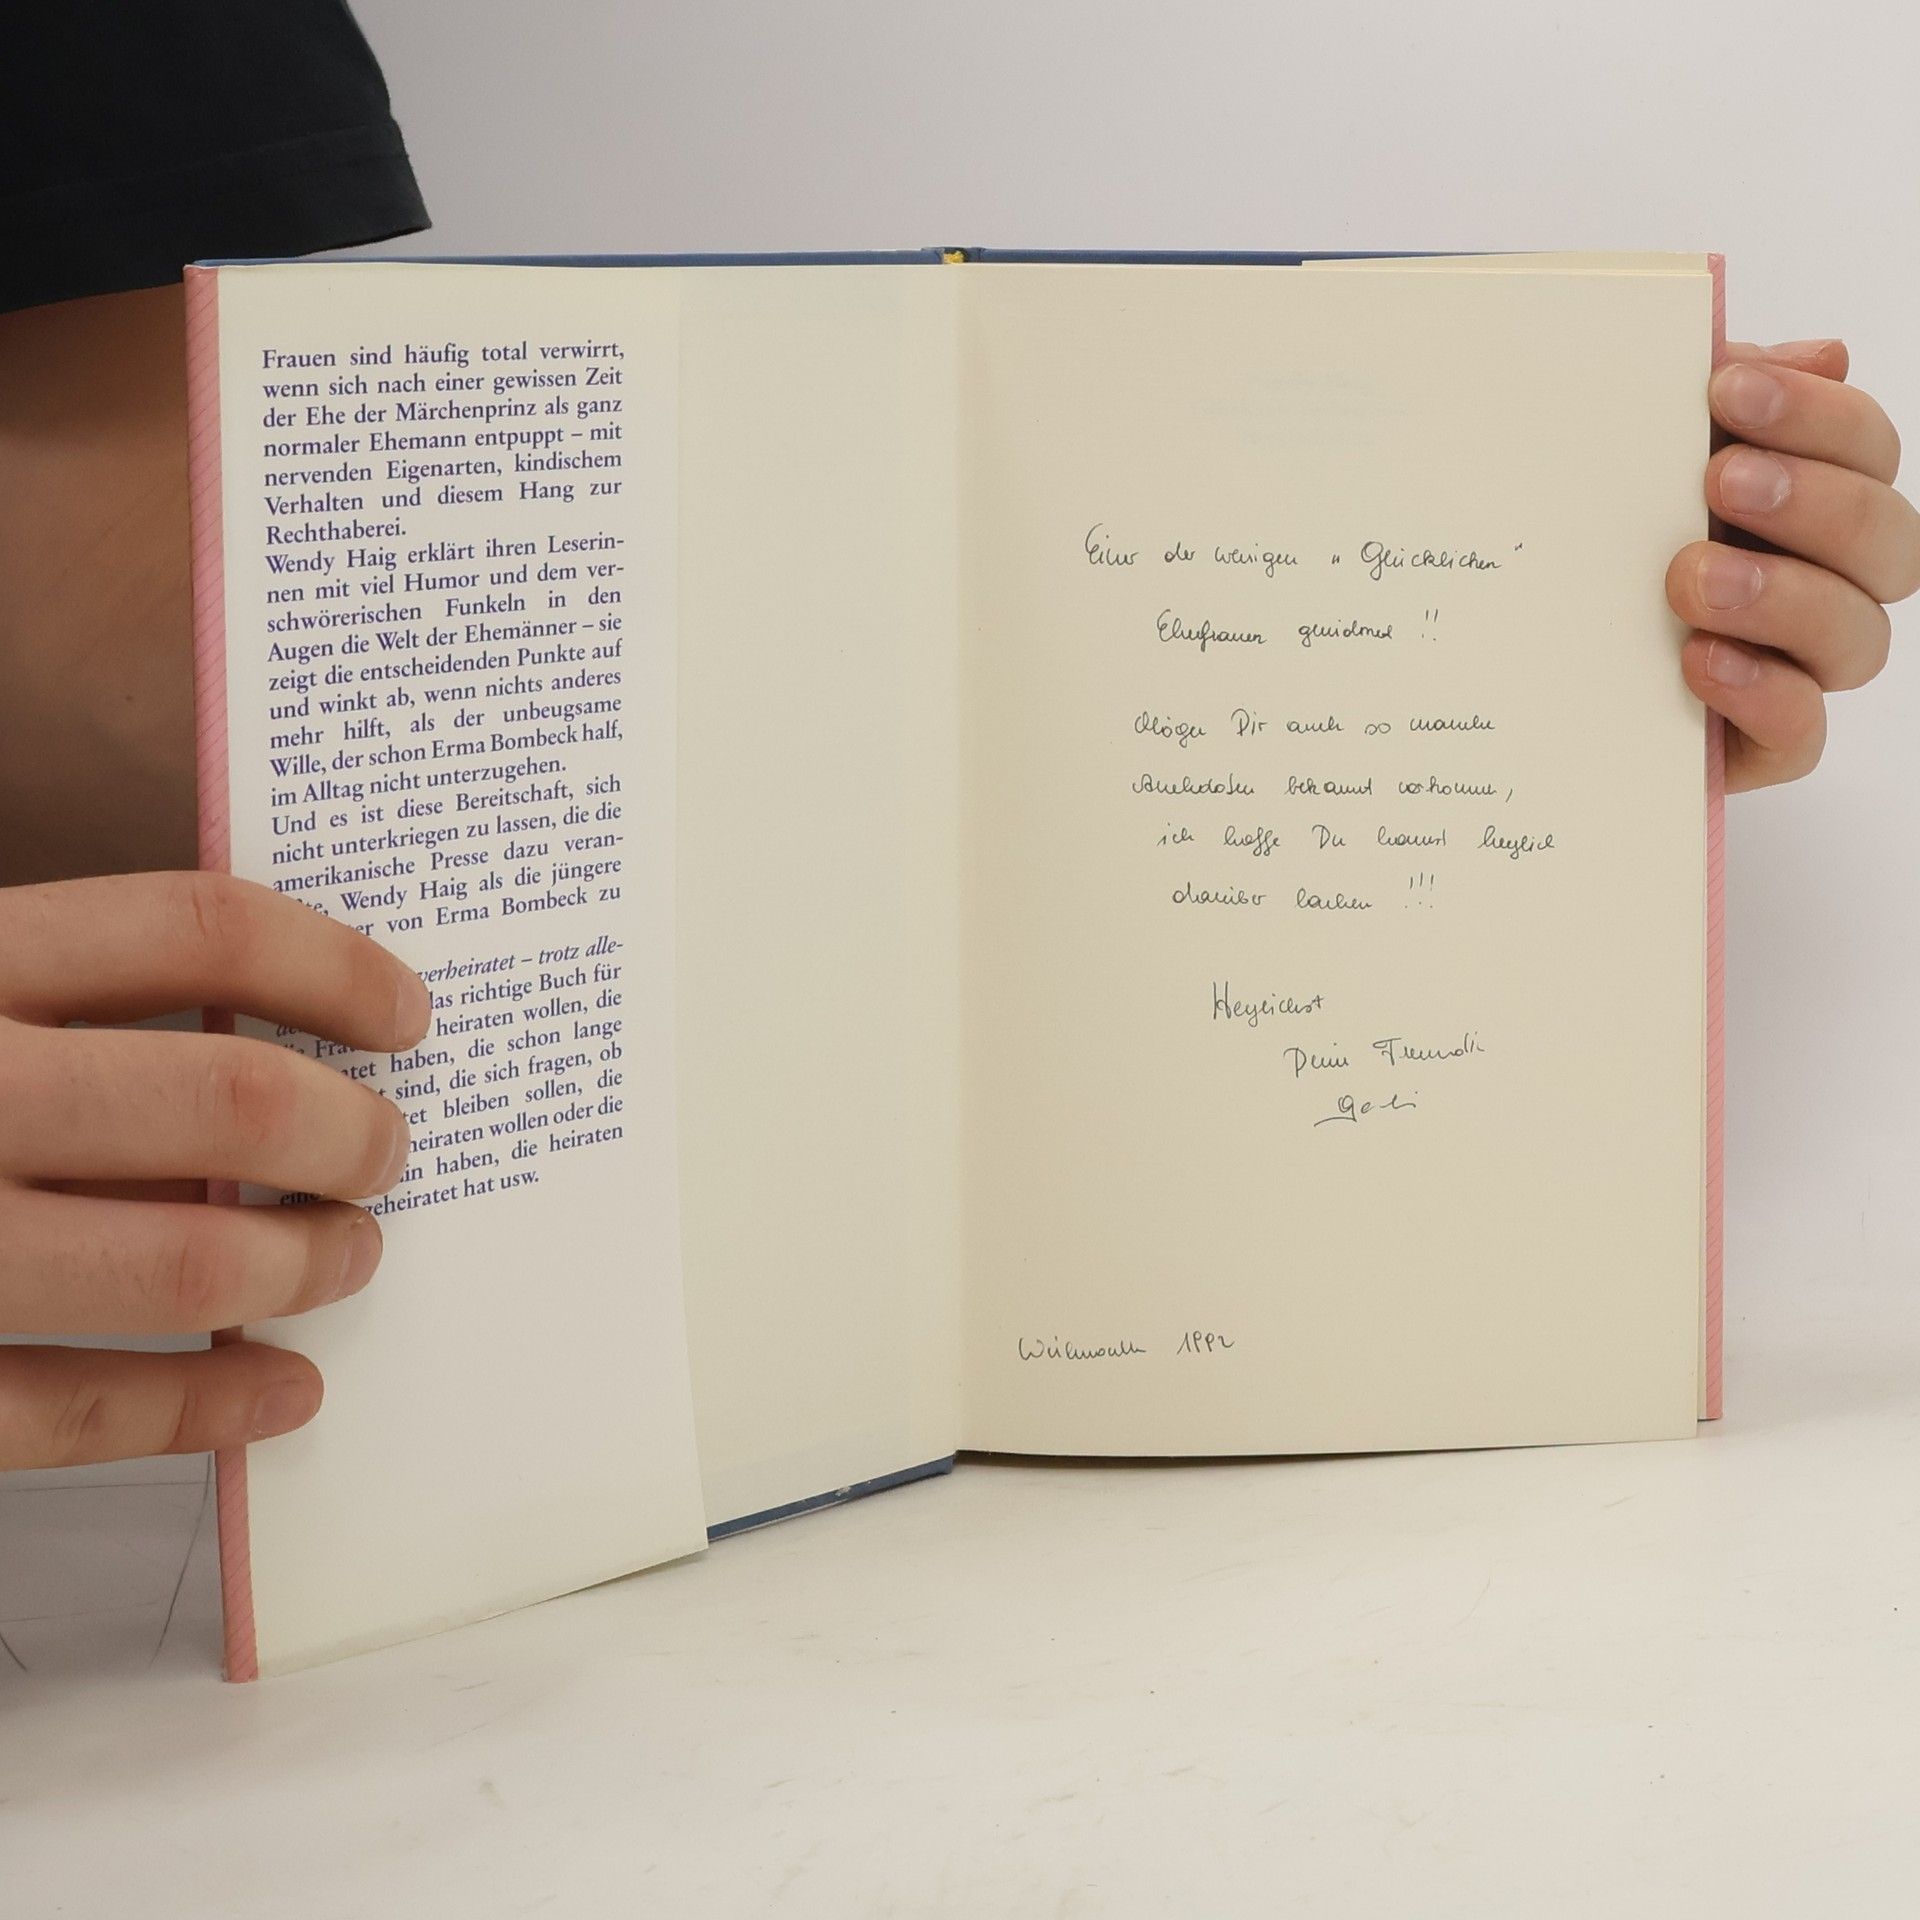 Frauen sind häufig total verwirrt,
wenn sich nach einer gewissen Zeit
der Ehe der Märchenprinz als ganz
normaler Ehemann entpuppt – mit
nervenden Eigenarten, kindischem
Verhalten und diesem Hang zur
Rechthaberei.
Wendy Haig erklärt ihren Leserin-
nen mit viel Humor und dem ver-
schwörerischen Funkeln in den
Augen die Welt der Ehemänner – sie
zeigt die entscheidenden Punkte auf
und winkt ab, wenn nichts anderes
mehr hilft, als der unbeugsame
Wille, der schon Erma Bombeck half,
im Alltag nicht unterzugehen.
Und es ist diese Bereitschaft, sich
nicht unterkriegen zu lassen, die die
amerikanische Presse dazu veran-
Wendy Haig als die jüngere
von Erma Bombeck zu
verheiratet – trotz alle-
das richtige Buch für
heiraten wollen, die
haben, die schon lange
sind, die sich fragen, ob
bleiben sollen, die
heiraten wollen oder die
haben, die heiraten
geheiratet hat usw.
Einer der wenigen „Glücklichen"
Ehefrauen gewidmet !!
Mögen Dir auch so manche
Anekdoten bekannt vorkommen,
ich hoffe Du kannst herzlich
darüber lachen !!!
Herzlichst
Deine Freundin
Gabi
Weihnachten 1992